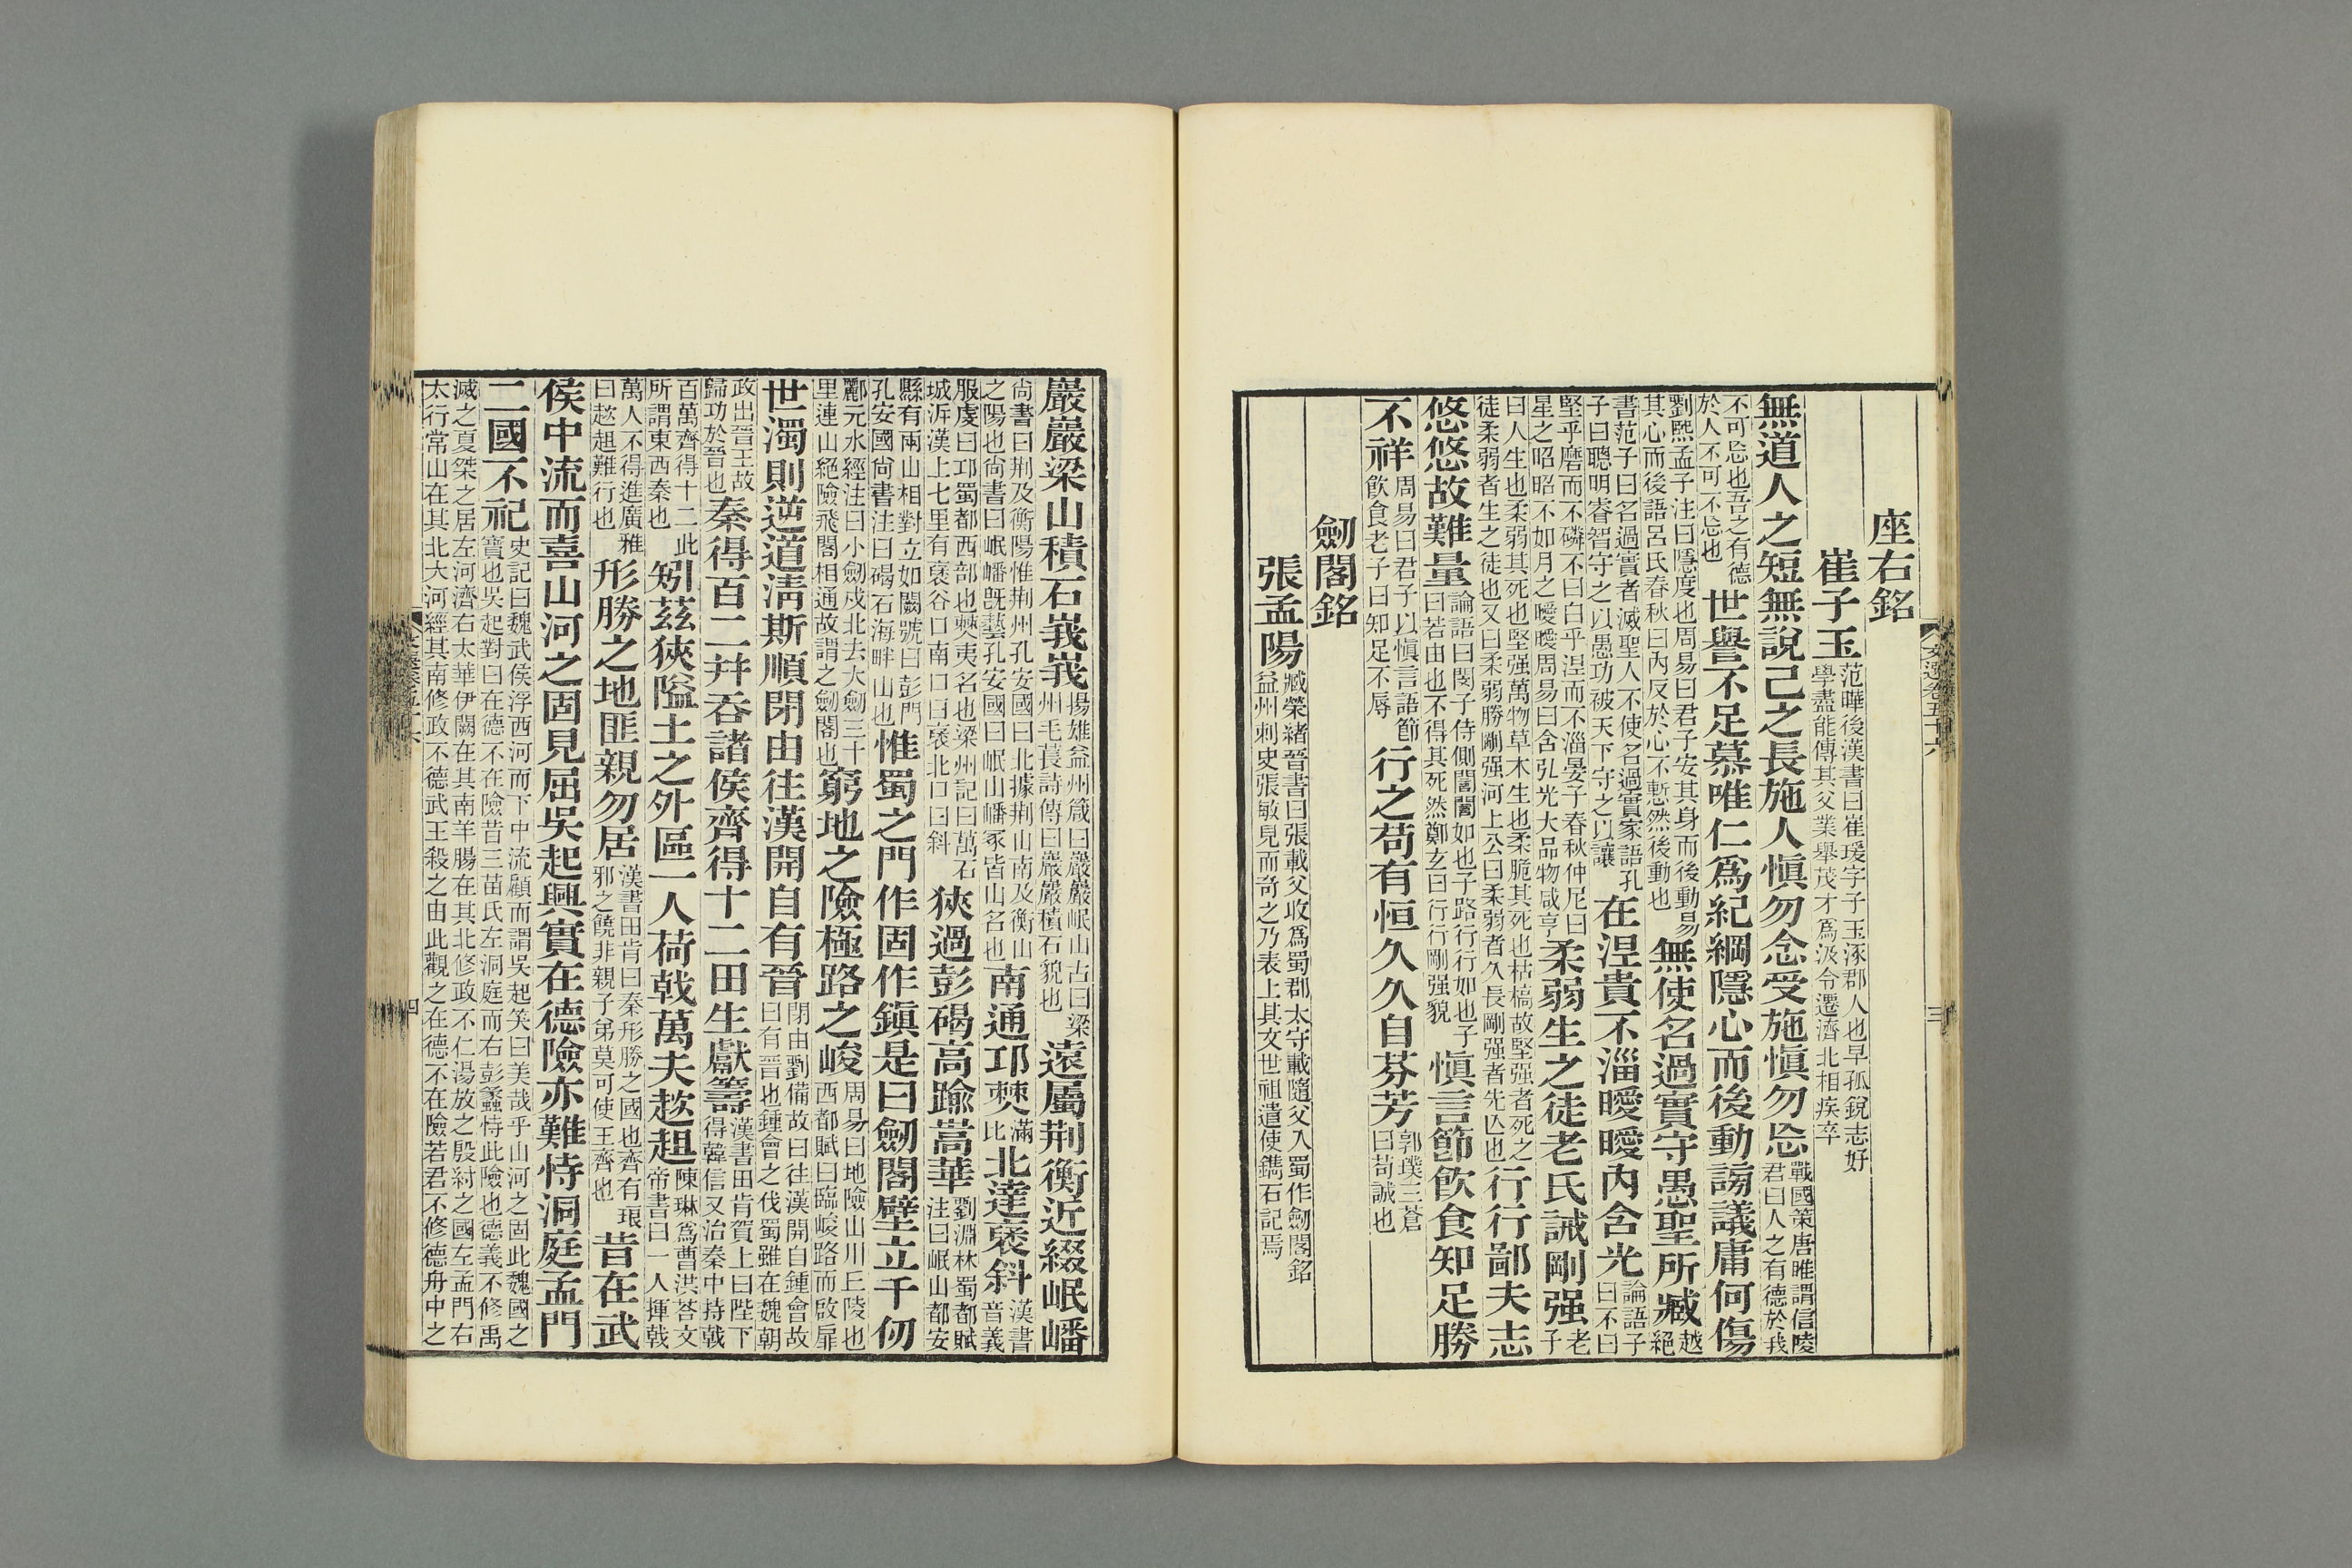 文選卷五十六
三
座右銘
崔子玉范曄後漢書曰崔瑗字子玉涿郡人也早孤銳志好學盡能傳其父業舉茂才爲汲令遷濟北相疾卒
無道人之短無說己之長施人愼勿念受施愼勿忘戰國策唐雎謂信陵君曰人之有德於我
不可忘也吾之有德於人不可不忘也世譽不足慕唯仁爲紀綱隱心而後動謗議庸何傷
劉熙孟子注曰隱度也周易曰君子安其身而後動易其心而後語呂氏春秋曰內反於心不慙然後動也無使名過實守愚聖所臧越絕
書范子曰名過實者滅聖人不使名過實家語孔子曰聰明睿智守之以愚功被天下守之以讓在涅貴不淄曖曖內含光論語子曰不曰
堅乎磨而不磷不曰白乎涅而不淄晏子春秋仲尼曰星之昭昭不如月之曖曖周易曰含弘光大品物咸亨柔弱生之徒老氏誡剛强老子
曰人生也柔弱其死也堅强萬物草木生也柔脆其死也枯槁故堅强者死之徒柔弱者生之徒也又曰柔弱勝剛强河上公曰柔弱者久長剛强者先亾也行行鄙夫志
悠悠故難量論語曰閔子侍側誾誾如也子路行行如也子曰若由也不得其死然鄭玄曰行行剛强貌愼言節飮食知足勝
不祥周易曰君子以愼言語節飮食老子曰知足不辱行之苟有恒久久自芬芳郭璞三蒼曰苟誠也
劒閣銘
張孟陽臧榮緖晉書曰張載父收爲蜀郡太守載隨父入蜀作劒閣銘益州刺史張敏見而奇之乃表上其文世祖遣使鐫石記焉
巖巖梁山積石峩峩揚雄益州箴曰巖巖岷山古曰梁州毛萇詩傳曰巖巖積石貌也遠屬荆衡近綴岷嶓
尙書曰荆及衡陽惟荆州孔安國曰北據荆山南及衡山之陽也尙書曰岷嶓旣藝孔安國曰岷山嶓冢皆山名也南通邛僰北達褒斜漢書音義
服虔曰邛蜀都西部也僰夷名也梁州記曰萬石城泝漢上七里有褒谷口南口曰褒北口曰斜狹過彭碣高踰嵩華劉淵林蜀都賦注曰岷山都安
縣有兩山相對立如闕號曰彭門孔安國尙書注曰碣石海畔山也惟蜀之門作固作鎭是曰劒閣壁立千仞
酈元水經注曰小劒戍北去大劒三十里連山絕險飛閣相通故謂之劒閣也窮地之險極路之峻周易曰地險山川丘陵也西都賦曰臨峻路而啟扉
世濁則逆道淸斯順閉由往漢開自有晉閉由劉備故曰往漢開自鍾會故曰有晉也鍾會之伐蜀雖在魏朝
政出晉王故歸功於晉也秦得百二并呑諸侯齊得十二田生獻籌漢書田肯賀上曰陛下得韓信又治秦中持戟
百萬齊得十二此所謂東西秦也矧茲狹隘土之外區一人荷戟萬夫趑趄陳琳爲曹洪荅文帝書曰一人揮戟
萬人不得進廣雅曰趑趄難行也形勝之地匪親勿居漢書田肯曰秦形勝之國也齊有琅邪之饒非親子弟莫可使王齊也昔在武
侯中流而喜山河之固見屈吳起興實在德險亦難恃洞庭孟門
二國不祀史記曰魏武侯浮西河而下中流顧而謂吳起笑曰美哉乎山河之固此魏國之寶也吳起對曰在德不在險昔三苗氏左洞庭而右彭蠡恃此險也德義不修禹
滅之夏桀之居左河濟右太華伊闕在其南羊腸在其北修政不仁湯放之殷紂之國左孟門右太行常山在其北大河經其南修政不德武王殺之由此觀之在德不在險若君不修德舟中之
四